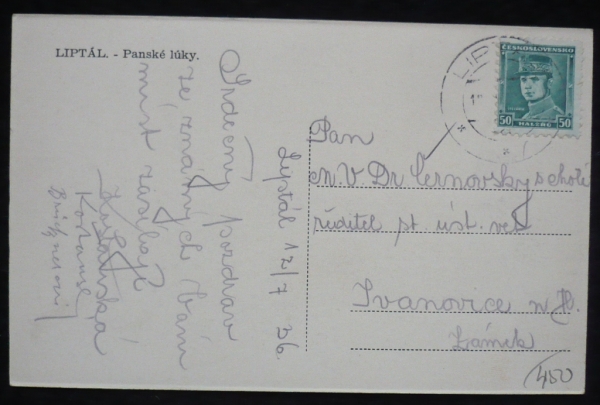 LIPTÁL. - Panské lúky.
Srdečný pozdrav
ze známých Vám
míst zasílají
Liptál 12/7 36.
ČESKOSLOVENSKO
50 HALÉŘŮ 50
LIP
Pan
Dr Černovský
ředitel st. úst. vet
Ivanovice n/H.
Zámek
450